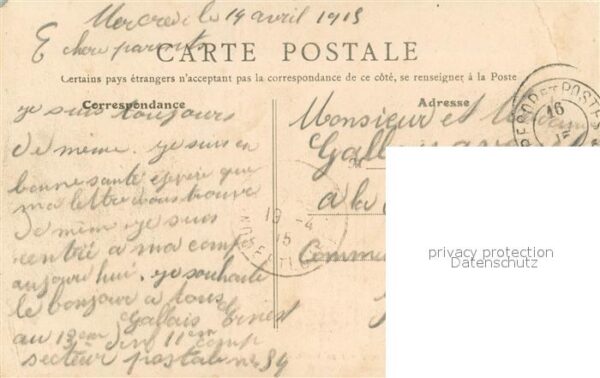 Mercredi le 14 avril 1915
chers parents
CARTE POSTALE
Certains pays étrangers n'acceptent pas la correspondance de ce côté, se renseigner à la Poste
Correspondance
je suis toujours
de même. je suis en
bonne santé espère que
ma lettre vous trouve
de même. je suis
rentré a ma comps
aujour hui. je souhaite
le bonjour a tous
Gallais Ernest
au 13em 11em comp
secteur postal n. 84
Adresse
Monsieur et
a la
Commu
TRESOR ET POSTES
16
19 -4
15
privacy protection
Datenschutz